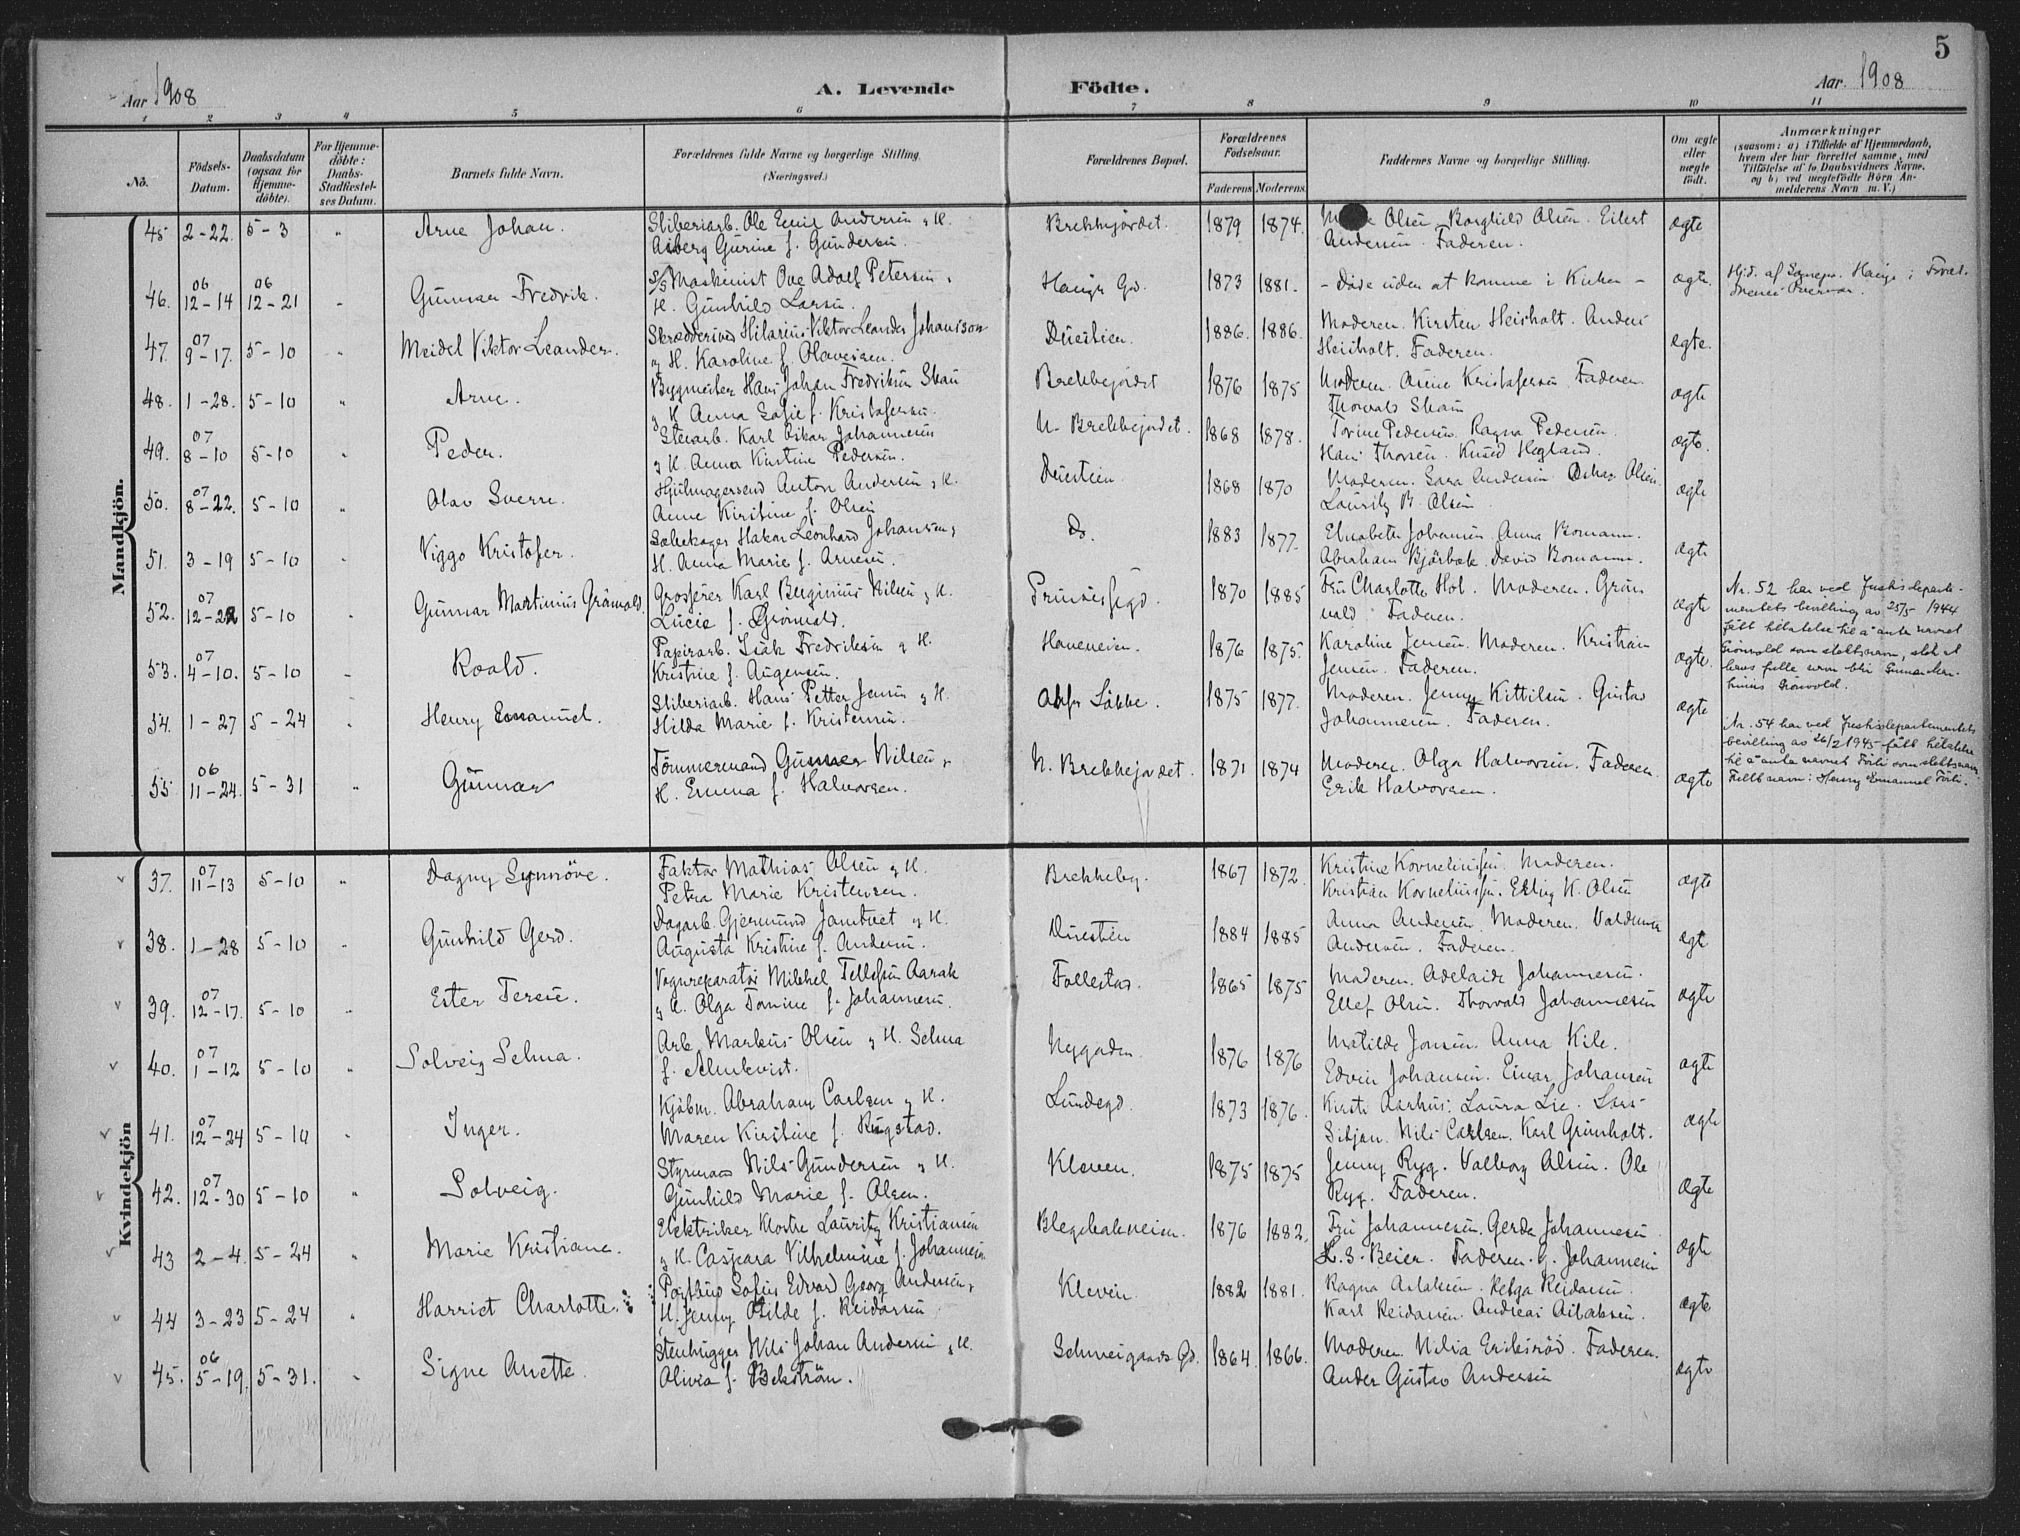 5
Aar 1908
A. Levende
Födte.
Aar 1908
1 2 3 4 5 6 7 8 9 10 11
No.
Födsels-
Datum.
Daabsdatum
(ogsaa for
Hjemme-
döbte).
For Hjemme-
döbte:
Daabs-
Stadfæstel-
ses Datum.
Barnets fulde Navn.
Forældrenes fulde Navne og borgerlige Stilling.
(Næringsvei.)
Forældrenes Bopæl.
Forældrenes
Födselsaar.
Faderens Moderens
Faddernes Navne og borgerlige Stilling.
Om ægte
eller
uægte
født.
Anmærkninger
(saasom: a) i Tilfælde af Hjemmedaab,
hvem der har forrettet samme, med
Tilföielse af to Daabsvidners Navne,
og b) ved uægtefödte Börn An-
melderens Navn m. V.)
Mandkjön.
45 2-22. 5-3 " Arne Johan. Sliberiarb. Ole Emil Andersen & H. Brekkejordet. 1879 1874. Olsen Borghild Olsen. Eilert ægte
Gurine f. Gundersen. Andersen. Faderen.
46. 06 12-14 06 12-21 " Gunnar Fredrik. S/S Maskinist Ove Adolf Petersen & Hauges Gd. 1873 1881. - Døde uden at komme i Kirken - ægte.
H. Gunhild Larsen.
47. 07 9-17. 5-10 " Meidel Viktor Leander. Skræddersvend Hilarius Viktor Leander Johansson Duestien. 1886. 1886. Moderen. Kirsten Heisholt. Anders ægte.
& H. Karoline f. Olavesen. Heisholt. Faderen.
48. 1-28. 5-10 " Arne. Bygmester Hans Johan Fredriksen Skau Brekkejordet 1876 1875 Moderen. Kristofersen Faderen ægte
& H Anna Sofie f. Kristofersen. Thorvald Skau
49. 07 8-10 5-10 " Peder. Karl Oskar Johannesen N. Brekkejordet. 1868 1878. Torine Pedersen. Ragna Pedersen. ægte.
& H. Anna Kirstine Pedersen. Hans Thorsen. Knud Hegland.
50. 07 8-22. 5-10 " Olav Sverre. Hjulmagersvend Anton Andersen & H. Duestien. 1868 1870 Moderen. Sara Andersen. Oskar Olsen. ægte
Anne Kirstine f. Olsen Lauritz B. Olsen
51. 3-19 5-10 " Viggo Kristofer. Hakon Leonhard Johansen & Do. 1883 1877. Elisabeth Johansen. Anna Bomann. ægte
H. Anna Marie f. Arnesen. Abraham Bjørbæk. David Bomann.
52. 07 12-22 5-10 " Gunnar Martinius Grönvold. Grosserer Karl Berginius Nilsen & H. Prinsessegd. 1870 1885 Fru Charlotte Hol. Moderen. Grön ægte
Lucie f. Grönvold. vold Faderen.
Nr. 52 har ved Justisdeparte-
mentets bevilling av 25/5 1944
fått tillatelse til å anta navnet
Grönvold som slektsnavn, slik at
hans fulle navn blir Gunnar Mar-
tinius Grönvold.
53. 07 4-10. 5-10 " Roald. Papirarb. Isak Fredriksen & H. Haveveien. 1876 1875. Karoline Jensen. Moderen. Kristian ægte.
Kristine f. Augensen. Jensen. Faderen.
54. 1-27 5-24 " Henry Emanuel. Sliberiarb. Hans Petter Jensen & H. 1875 1877. Moderen. Jenny Kittilsen. Gustav ægte
Hilda Marie f. Kristensen. Johannesen. Faderen.
Nr. 54 har ved Justisdepartementets
bevilling av 26/2 1945 fått tillatelse
til å anta navnet Förli som slektsnavn.
Fullt navn: Henry Emanuel Förli.
55 06 11-24. 5-31 " Gunnar Tömmermand Gunner Nilsen & N. Brekkejordet. 1871 1874 Moderen. Olga Halvorsen. Faderen. ægte
H. Emma f. Halvorsen. Erik Halvorsen.
Kvindekjön
37. 07 11-13 5-10 " Dagny Synnöve. Faktor Mathias Olsen & H. Brekkeby. 1867 1872. Kristine Korneliussen Moderen. ægte
Petra Marie Kristensen. Kristian Korneliussen. Erling K. Olsen
38. 1-28 5-10 " Gunhild Gerd. Dagarb. Gjermund Jamtvet & H. Duestien 1884 1885 Anna Andersen. Moderen. Valdemar ægte
Augusta Kristine f. Andersen. Andersen. Faderen.
39. 07 12-17. 5-10 " Ester Terese. Vognreparatör Mikkel Tellefsen Aarak Follestad. 1865 1875 Moderen. Adelaide Johannesen. ægte
& H. Olga Tomine f. Johannesen. Ellef Olsen. Thorvald Johannesen
40. 07 1-12 5-10 " Solveig Selma. Arb. Markus Olsen & H. Selma Nygaden 1876 1876 Matilde Jonsen. Anna Kile. ægte
f. Almkvist. Edvin Johansen. Einar Johansen
41. 07 12-24 5-10 " Inger. Kjöbm. Abraham Carlsen & H. Lundegd. 1873 1876. Kirsti Aarhus. Laura Lie. Lars ægte
Maren Kirstine f. Rugstad. Siljan. Nils Carlsen. Karl Grönholt.
42. 07 12-30 5-10 " Solveig. Styrmand Nils Gundersen & H. Kleven. 1875 1875 Jenny Ryg. Valborg Olsen. Ole ægte
Gunhild Marie f. Olsen. Ryg. Faderen.
43 2-4. 5-24 " Marie Kristiane. Elektriker Lauritz Kristiansen Blegebakveien. 1876 1882. Fru Johannesen. Gerda Johannesen ægte
& H. Caspara Vilhelmine f. Johannesen L. S. Beier. Faderen. G. Johannesen
44 3-23 5-24 " Harriet Charlotte. Postbud Sofus Edvard Georg Andersen & Kleven. 1882 1881. Ragna Aslaksen. Helga Reidarsen. ægte
H. Jenny Otilde f. Reidarsen Karl Reidarsen. Andreas Aslaksen.
45. 06 5-19. 5-31. " Signe Anette. Stenhugger Nils Johan Andersen & H. Schweigaards Gd. 1864 1866. Moderen. Nilia Eriksröd. Faderen. ægte
Olivia f. Bekström. Ander Gustav Andersen